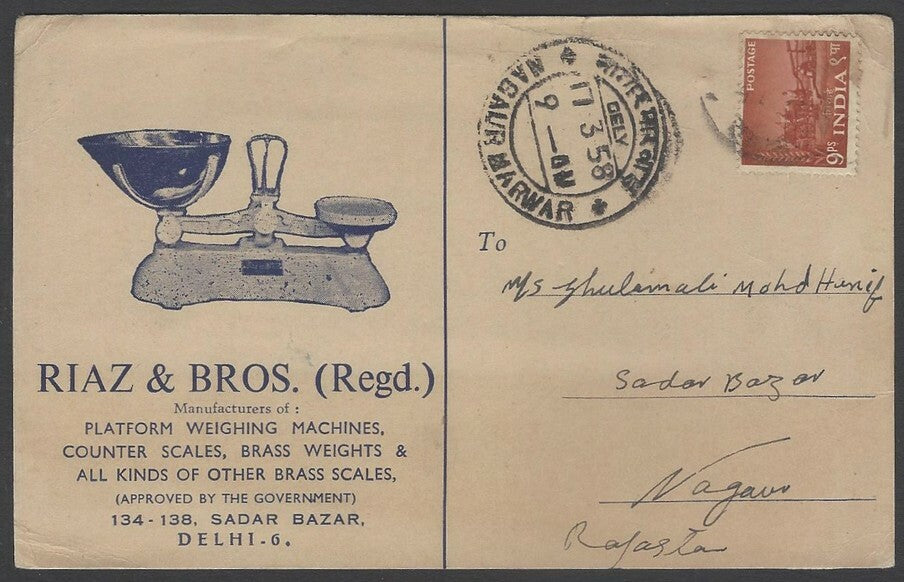 RIAZ & BROS. (Regd.)
Manufacturers of :
PLATFORM WEIGHING MACHINES,
COUNTER SCALES, BRASS WEIGHTS &
ALL KINDS OF OTHER BRASS SCALES,
(APPROVED BY THE GOVERNMENT)
134-138, SADAR BAZAR,
DELHI-6.
NAGAUR MARWAR
DELY
17 3 58
9 - AM
POSTAGE
INDIA
9 ps
To
M/s Ghulamali Mohd Hanif
Sadar Bazar
Nagaur
Rajasta